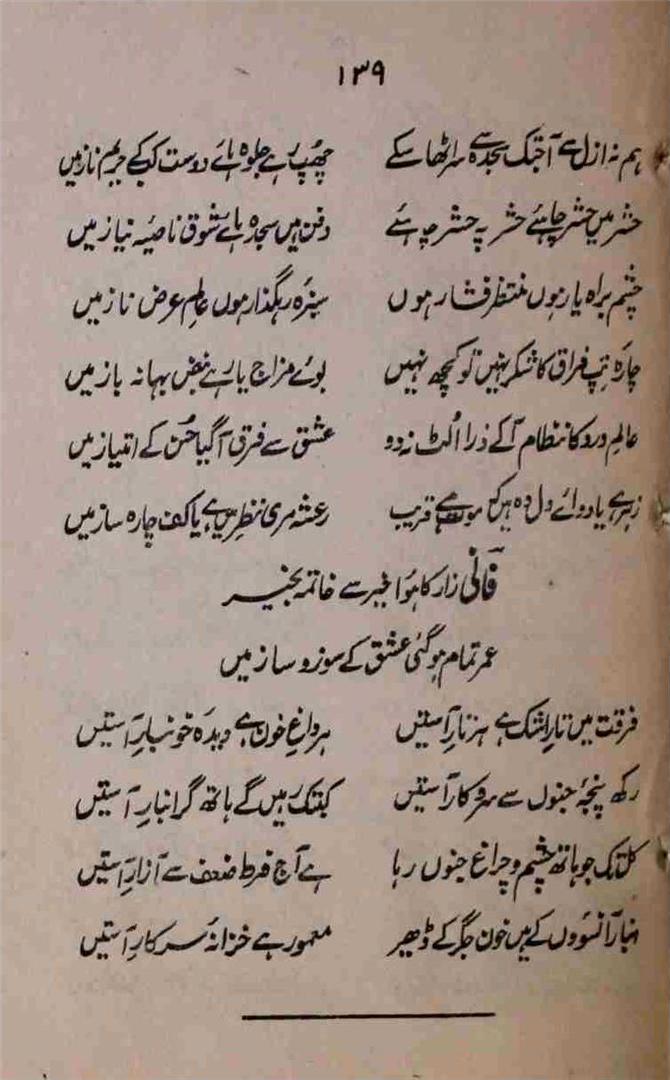 ۱۳۹
ہم نہ ازل سے آجتک سجدہ سے سر اٹھا سکے چھپ رہے جلوہ ہائے دوست کے حریم ناز میں
حشر میں حشر چاہئے حشر پہ حشر چاہئے دفن ہیں سجدہ ہائے شوق ناصیۂ نیاز میں
چشم براہ یار ہوں منتظر فشار ہوں سبزۂ رہگذار ہوں عالم عرض ناز میں
چارۂ تپ فراق کا شکر نہیں تو کچھ نہیں بوئے مزاج یار ہے نبض بہانہ باز میں
عالم درد کا نظام آکے ذرا الٹ نہ دو عشق سے فرق آگیا حسن کے امتیاز میں
زہر ہے یا دوائے دل وہ ہیں کہ موت ہے قریب رعشہ مری نظر میں ہے یا کف چارہ ساز میں
فانی زار کا ہوا خیر سے خاتمہ بخیر
عمر تمام ہوگئی عشق کے سوز و ساز میں
فرقت میں تار اشک ہے ہر تار آستیں ہر داغ خون ہے دیدۂ خونبار آستیں
رکھ پنجۂ جنوں سے سروکار آستیں کبتک رہیں گے ہاتھ گرانبار آستیں
کل تک جو ہاتھ چشم و چراغ جنوں رہا ہے آج فرط ضعف سے آزار آستیں
انبار آنسووں کے ہیں خون جگر کے ڈھیر معمور ہے خزانۂ سرکار آستیں